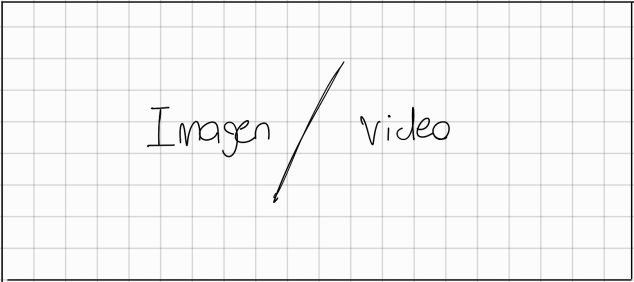 Imagen / video